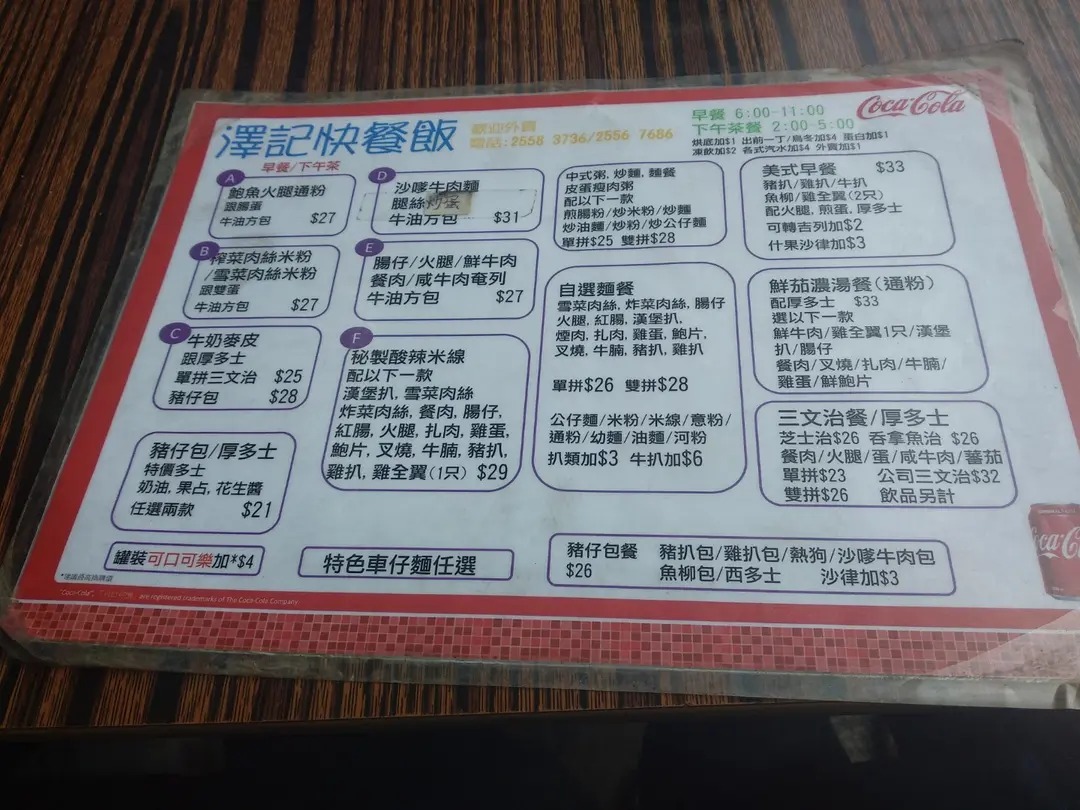 澤記快餐飯
歡迎外賣
電話:2558 3736/2556 7686
早餐 6:00-11:00
下午茶餐 2:00-5:00
烘底加$1 出前一丁/烏冬加$4 蛋白加$1
凍飲加$2 各式汽水加$4 外賣加$1
Coca-Cola
早餐/下午茶
A
鮑魚火腿通粉
跟腸蛋
牛油方包 $27
B
榨菜肉絲米粉
/雪菜肉絲米粉
跟雙蛋
牛油方包 $27
C
牛奶麥皮
跟厚多士
單拼三文治 $25
豬仔包 $28
豬仔包/厚多士
特價多士
奶油, 果占, 花生醬
任選兩款 $21
罐裝可口可樂加*$4
D
沙嗲牛肉麵
腿絲炒蛋
牛油方包 $31
E
腸仔/火腿/鮮牛肉
餐肉/咸牛肉奄列
牛油方包 $27
F
秘製酸辣米線
配以下一款
漢堡扒, 雪菜肉絲
炸菜肉絲, 餐肉, 腸仔,
紅腸, 火腿, 扎肉, 雞蛋,
鮑片, 叉燒, 牛腩, 豬扒,
雞扒, 雞全翼(1只) $29
特色車仔麵任選
中式粥, 炒麵, 麵餐
皮蛋瘦肉粥
配以下一款
煎腸粉/炒米粉/炒麵
炒油麵/炒粉/炒公仔麵
單拼$25 雙拼$28
自選麵餐
雪菜肉絲, 炸菜肉絲, 腸仔
火腿, 紅腸, 漢堡扒,
煙肉, 扎肉, 雞蛋, 鮑片,
叉燒, 牛腩, 豬扒, 雞扒
單拼$26 雙拼$28
公仔麵/米粉/米線/意粉/
通粉/幼麵/油麵/河粉
扒類加$3 牛扒加$6
美式早餐 $33
豬扒/雞扒/牛扒
魚柳/雞全翼(2只)
配火腿, 煎蛋, 厚多士
可轉吉列加$2
什果沙律加$3
鮮茄濃湯餐(通粉)
配厚多士 $33
選以下一款
鮮牛肉/雞全翼1只/漢堡
扒/腸仔
餐肉/叉燒/扎肉/牛腩/
雞蛋/鮮鮑片
三文治餐/厚多士
芝士治$26 吞拿魚治 $26
餐肉/火腿/蛋/咸牛肉/蕃茄
單拼$23 公司三文治$32
雙拼$26 飲品另計
豬仔包餐 豬扒包/雞扒包/熱狗/沙嗲牛肉包
$26 魚柳包/西多士 沙律加$3
are registered trademarks of The Coca-Cola Company